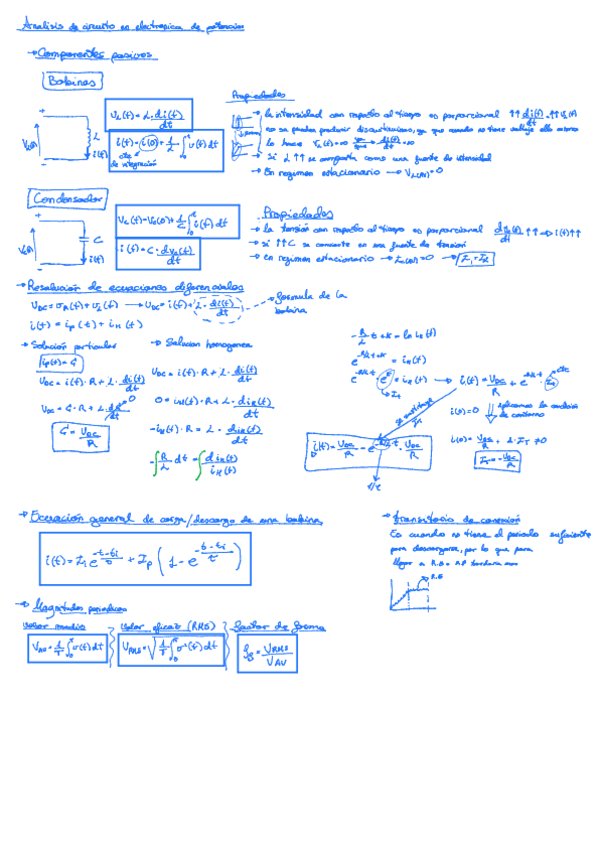 Analisis de circuito en electronica de potencia
→ Componentes pasivos
Bobinas
V_L(t) = L · di(t)/dt
i(t) = i(0) + 1/L ∫ v(t) dt
cte de integración
L
i(t)
Propiedades
→ la intensidad con respecto al tiempo es proporcional ↑↑ di(t)/dt = ↑↑ V_L(t)
→ no se pueden producir discontinuidades, ya que cuando no tiene voltaje ella misma
→ si L ↑↑ se comporta como una fuente de intensidad
→ En regimen estacionario → V_L(AV) = 0
Condensador
V_c(t) = V_c(0) + 1/C ∫ i(t) dt
i(t) = C · dV_c(t)/dt
C
i(t)
Propiedades
→ la tensión con respecto al tiempo es proporcional dV_c(t)/dt ↑↑ → i(t) ↑↑
→ si ↑↑ C se convierte en una fuente de tension
→ en regimen estacionario → I_c(AV) = 0
→ Resolución de ecuaciones diferenciales
V_DC = v_R(t) + v_L(t) → V_DC = i(t) + L · di(t)/dt → formula de la bobina
i(t) = i_p(t) + i_H(t)
→ Solución particular
i_p(t) = G
V_DC = i(t) · R + L · di(t)/dt
V_DC = G · R + L · dG/dt → 0
G = V_DC/R
→ Solucion homogenea
V_DC = i(t) · R + L · di(t)/dt
0 = i_H(t) · R + L · di_H(t)/dt
-i_H(t) · R = L · di_H(t)/dt
-∫ R/L dt = ∫ di_H(t)/i_H(t)
-R/L t + K = ln i_H(t)
e^(-R/L t + K) = i_H(t)
e^(-R/L t) · e^K = i_H(t) → i(t) = V_DC/R + e^(-R/L t) · I_T
cte
se sustituye
i(0) = 0
aplicamos la condición de contorno
I_T = -V_DC/R
i(t) = V_DC/R - e^(-R/L t) · V_DC/R
→ Ecuación general de carga/descarga de una bobina
i(t) = I_i e^(-(t-ti)/τ) + I_p (1 - e^(-(t-ti)/τ))
→ transitorio de conexión
Es cuando no tiene el periodo suficiente
para descargarse, por lo que para
→ Magnitudes periodicas
Valor medio
V_AV = 1/T ∫ v(t) dt
Valor eficaz (RMS)
V_RMS = √(1/T ∫ v²(t) dt)
factor de forma
f_f = V_RMS/V_AV